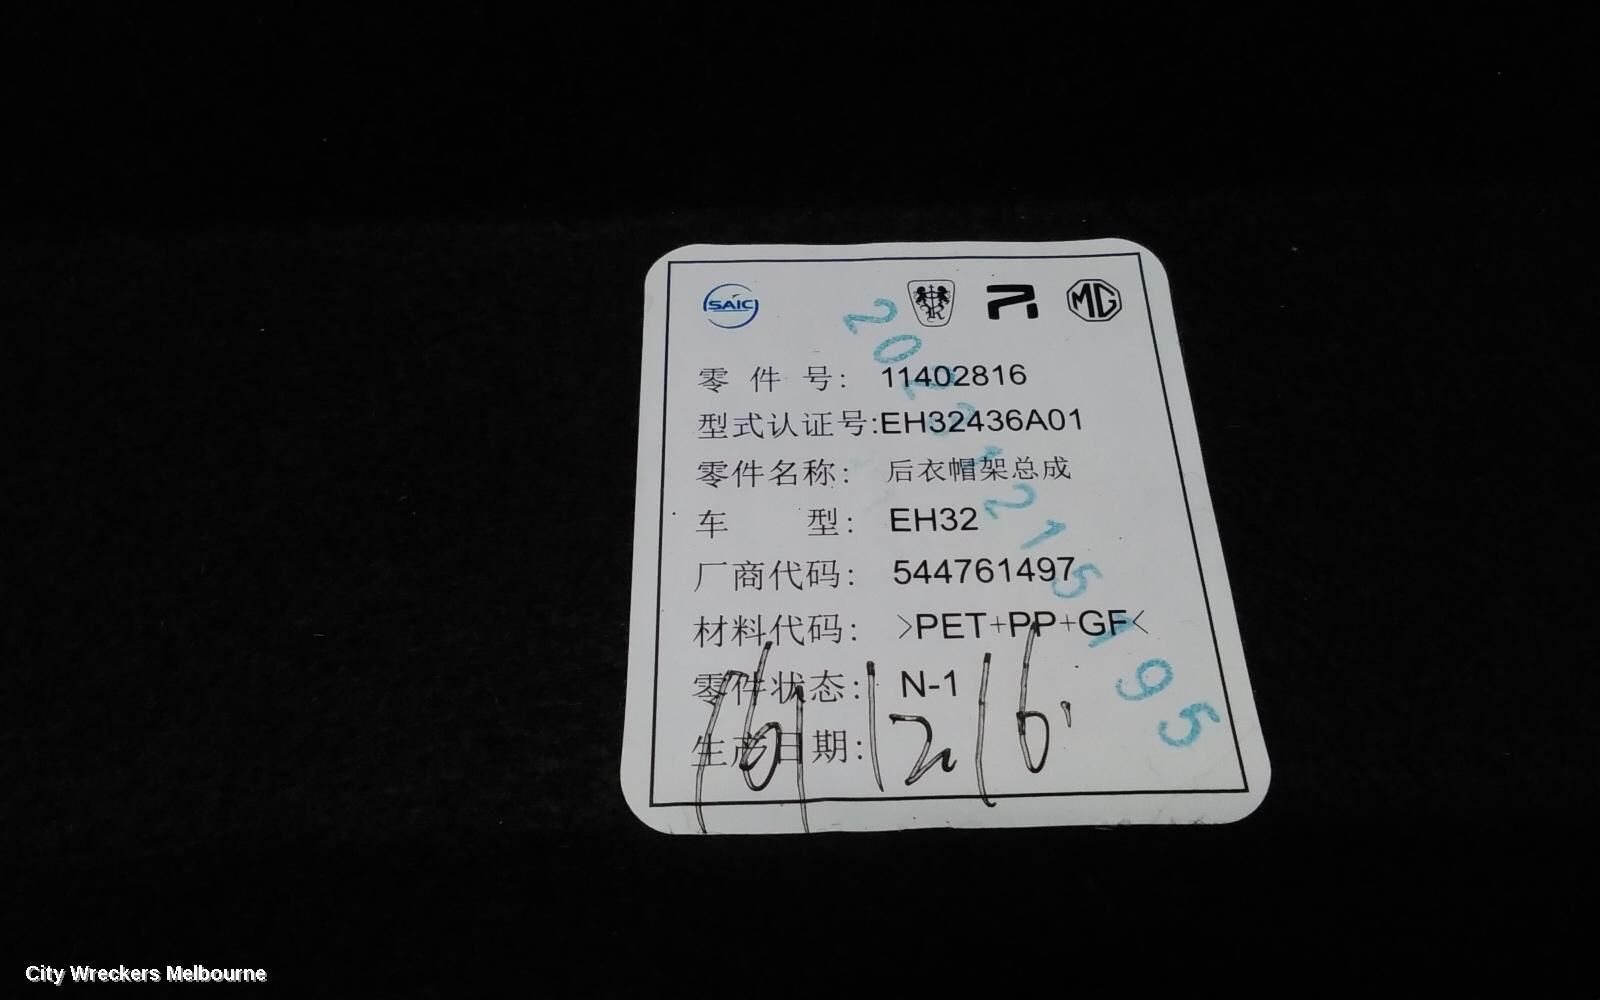 SAIC MG
零件号: 11402816
型式认证号:EH32436A01
零件名称: 后衣帽架总成
车型: EH32
厂商代码: 544761497
材料代码: >PET+PP+GF<
零件状态: N-1
生产日期:
City Wreckers Melbourne